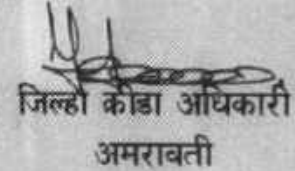 जिल्हा क्रीडा अधिकारी
अमरावती